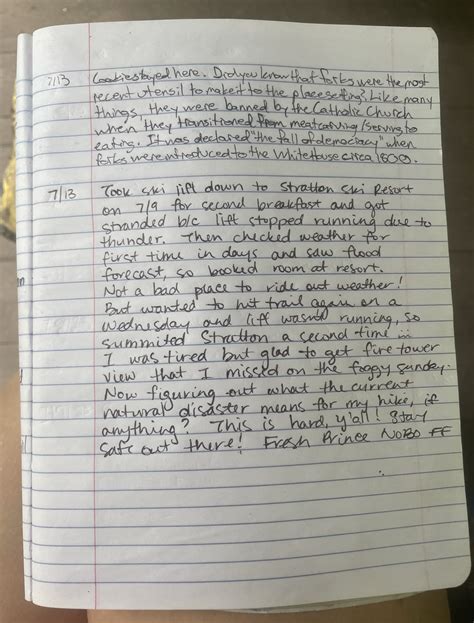 7/13 Cookie stayed here. Did you know that forks were the most
recent utensil to make it to the place setting? Like many
things, they were banned by the Catholic Church
when they transitioned from meat carving/serving to
eating. It was declared "the fall of democracy" when
forks were introduced to the White House circa 1800.
7/13 Took ski lift down to Stratton Ski Resort
on 7/9 for second breakfast and got
stranded b/c lift stopped running due to
thunder. Then checked weather for
first time in days and saw flood
forecast, so booked room at resort.
Not a bad place to ride out weather!
But wanted to hit trail again on a
Wednesday and lift wasn't running, so
summited Stratton a second time...
I was tired but glad to get fire tower
view that I missed on the foggy Sunday.
Now figuring out what the current
natural disaster means for my hike, if
anything? This is hard, y'all! Stay
safe out there! Fresh Prince NOBO FF